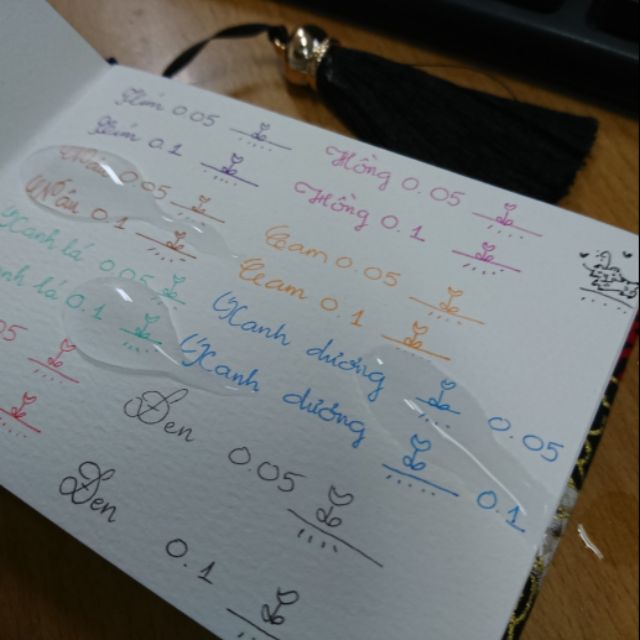 Tím 0.05
Tím 0.1
Nâu 0.05
Nâu 0.1
Xanh lá 0.05
Xanh lá 0.1
05
Hồng 0.05
Hồng 0.1
Cam 0.05
Cam 0.1
Xanh dương 0.05
Xanh dương 0.1
Đen 0.05
Đen 0.1